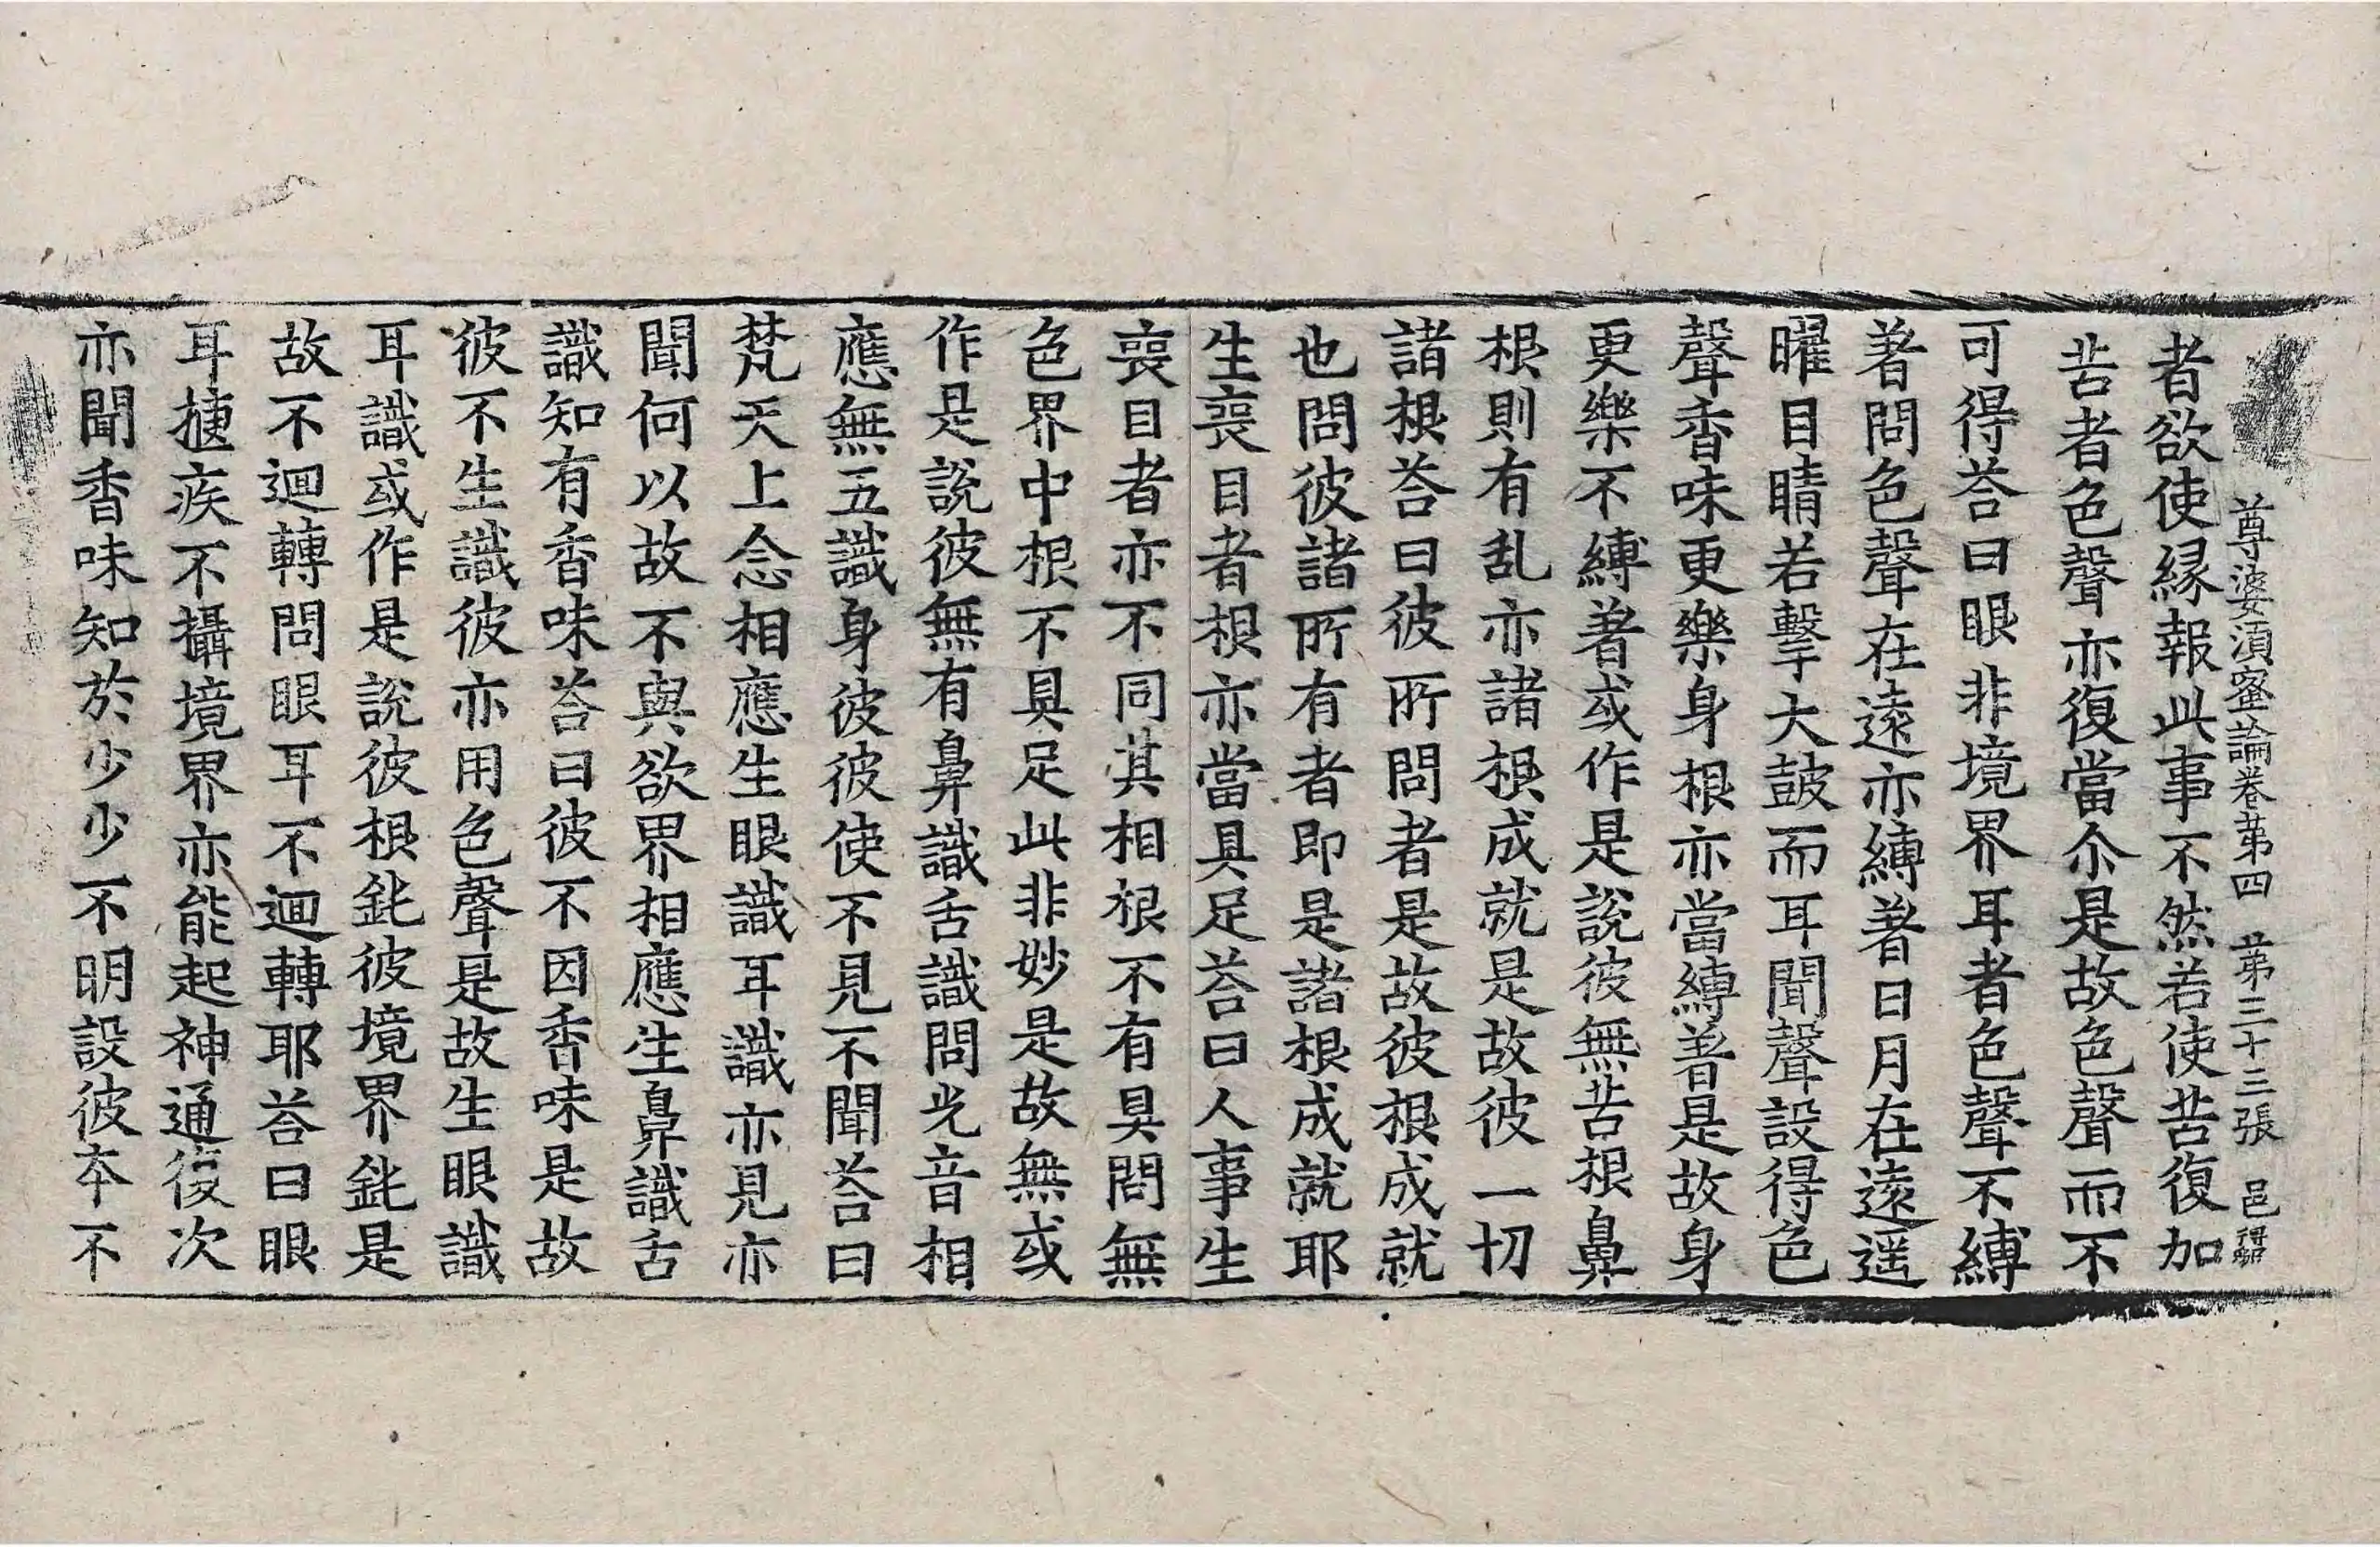 尊婆湏蜜論卷苐四　苐三十三張　邑
者欲使緣報此事不然若使苦復加
苦者色聲亦復當尒是故色聲而不
可得荅曰眼非境界耳者色聲不縛
著問色聲在遠亦縛著日月在遠遥
曜目睛若擊大皷而耳聞聲設得色
聲香味更樂身根亦當縛著是故身
更樂不縛著或作是說彼無苦根鼻
根則有乱亦諸根成就是故彼一切
諸根荅曰彼所問者是故彼根成就
也問彼諸所有者即是諸根成就耶
生喪目者根亦當具足荅曰人事生
喪目者亦不同其相根不有具問無
色界中根不具足此非妙是故無或
作是說彼無有鼻識舌識問光音相
應無五識身彼彼使不見不聞荅曰
梵天上念相應生眼識耳識亦見亦
聞何以故不與欲界相應生鼻識舌
識知有香味荅曰彼不因香味是故
彼不生識彼亦用色聲是故生眼識
耳識或作是說彼根鈋彼境界鈋是
故不迴轉問眼耳不迴轉耶荅曰眼
耳揵疾不攝境界亦能起神通復次
亦聞香味知於少少不明設彼夲不